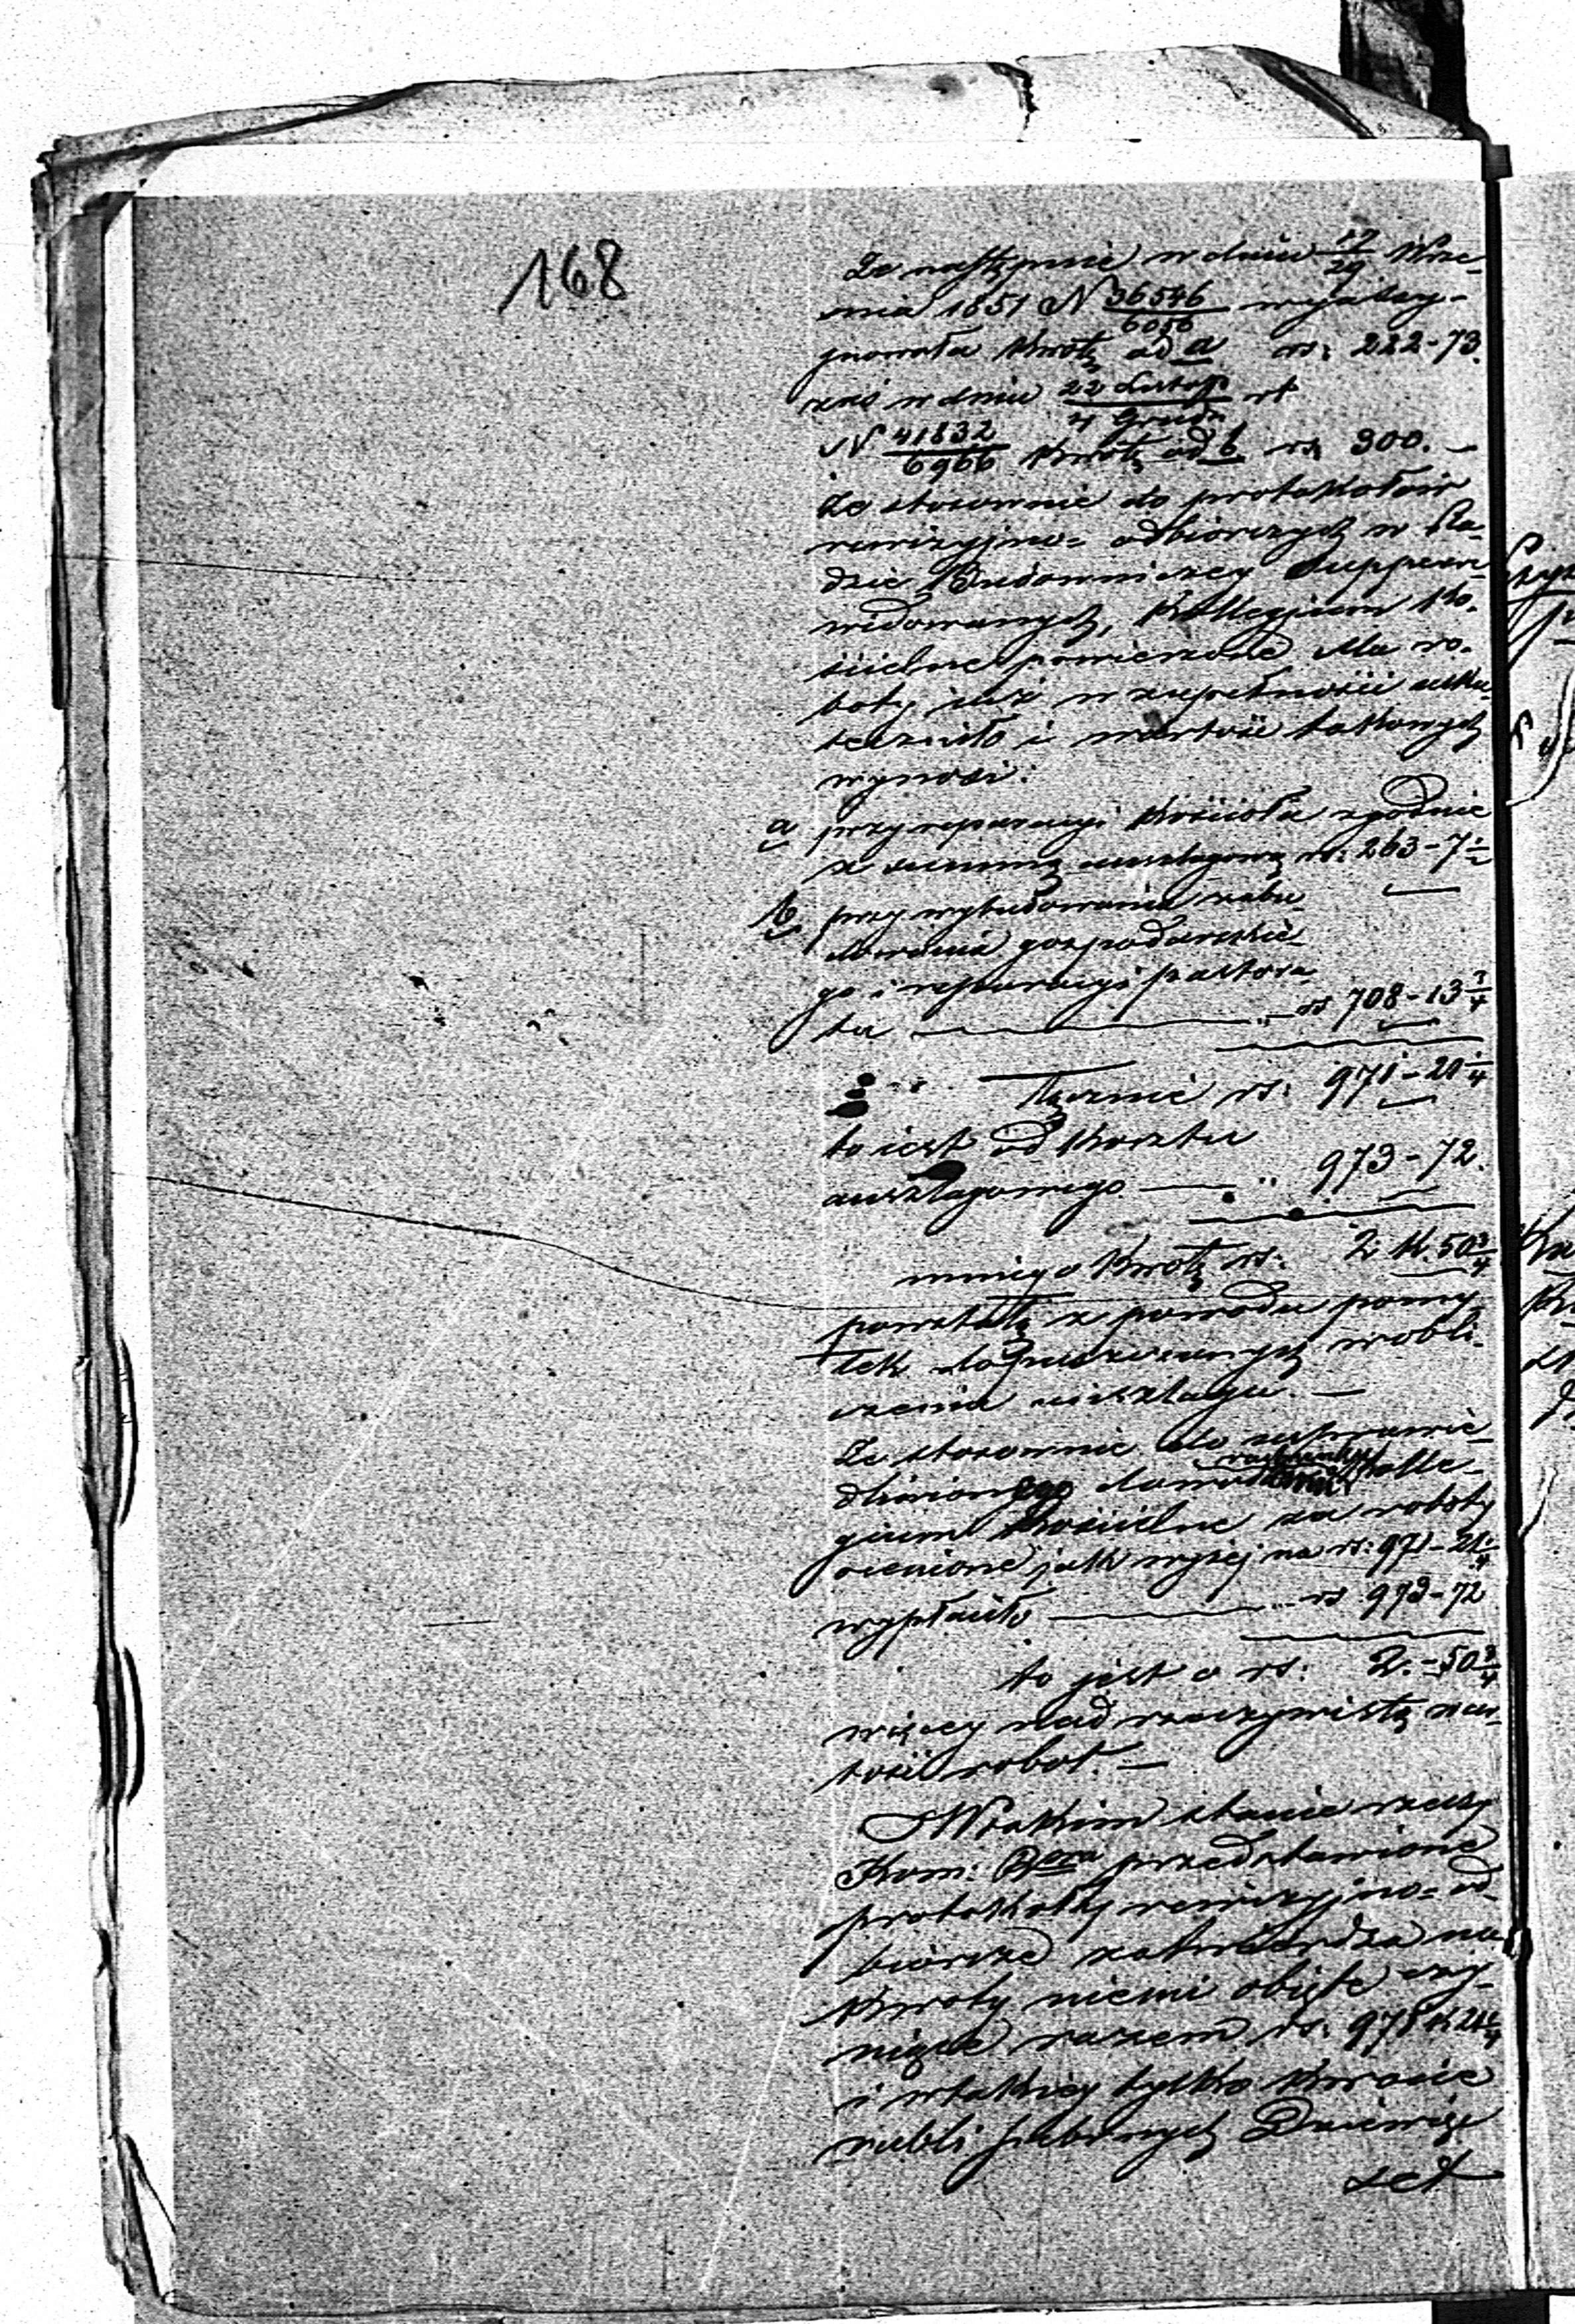 168
Że następnie w dniu 17/29 Wrze-
śnia 1851 N 36546/6056 wyassy-
gnowała kwotę ad a rs: 222-73.
zaś w dniu 22 Listop/4 Grudn rb
N 41832/6966 kwotę ad b rs 300. —
Że stosownie do protokołów
rewizyjno= odbiorczych w Ra-
dzie Budowniczey superrewi-
dowanych, Kollegium Ko-
ścielne powierzone Mu ro-
boty już w zupełności usku-
teczniło i wartość takowych
wynosi:
a przy reparacyi Kościoła zgodnie
z summą anszlagową rs: 263-7½
b przy wybudowaniu zabu-
dowania gospodarskie-
go i reparacyi pastora-
tu — " rs 708-13¾
Łącznie rs: 971-21¼
to iest od kosztu
anszlagowego — " 973-72.
mniey o kwotę rs: 2 k. 50¾
powstałą z powodu pomy-
łek dopuszczonych w obli-
czeniu anszlagu. —
Że stosownie do usprawie-
dliwionego rachunku Kolle-
gium Kościelne za roboty
ocenione jak wyżej na rs: 971-21¼
wypłaciło — " rs 973-72
to jest o rs: 2.-50¾
więcey nad rzeczywistą war-
tość robot. —
W takim stanie rzeczy
Kom: Rzowa przedstawione
protokoły rewizyjno= od-
biorcze zatwierdza na
kwoty niemi objęte czy-
niące razem rs. 971 k 21¼
i w takiey tylko kwocie
rubli srebrnych Dziewię-
set